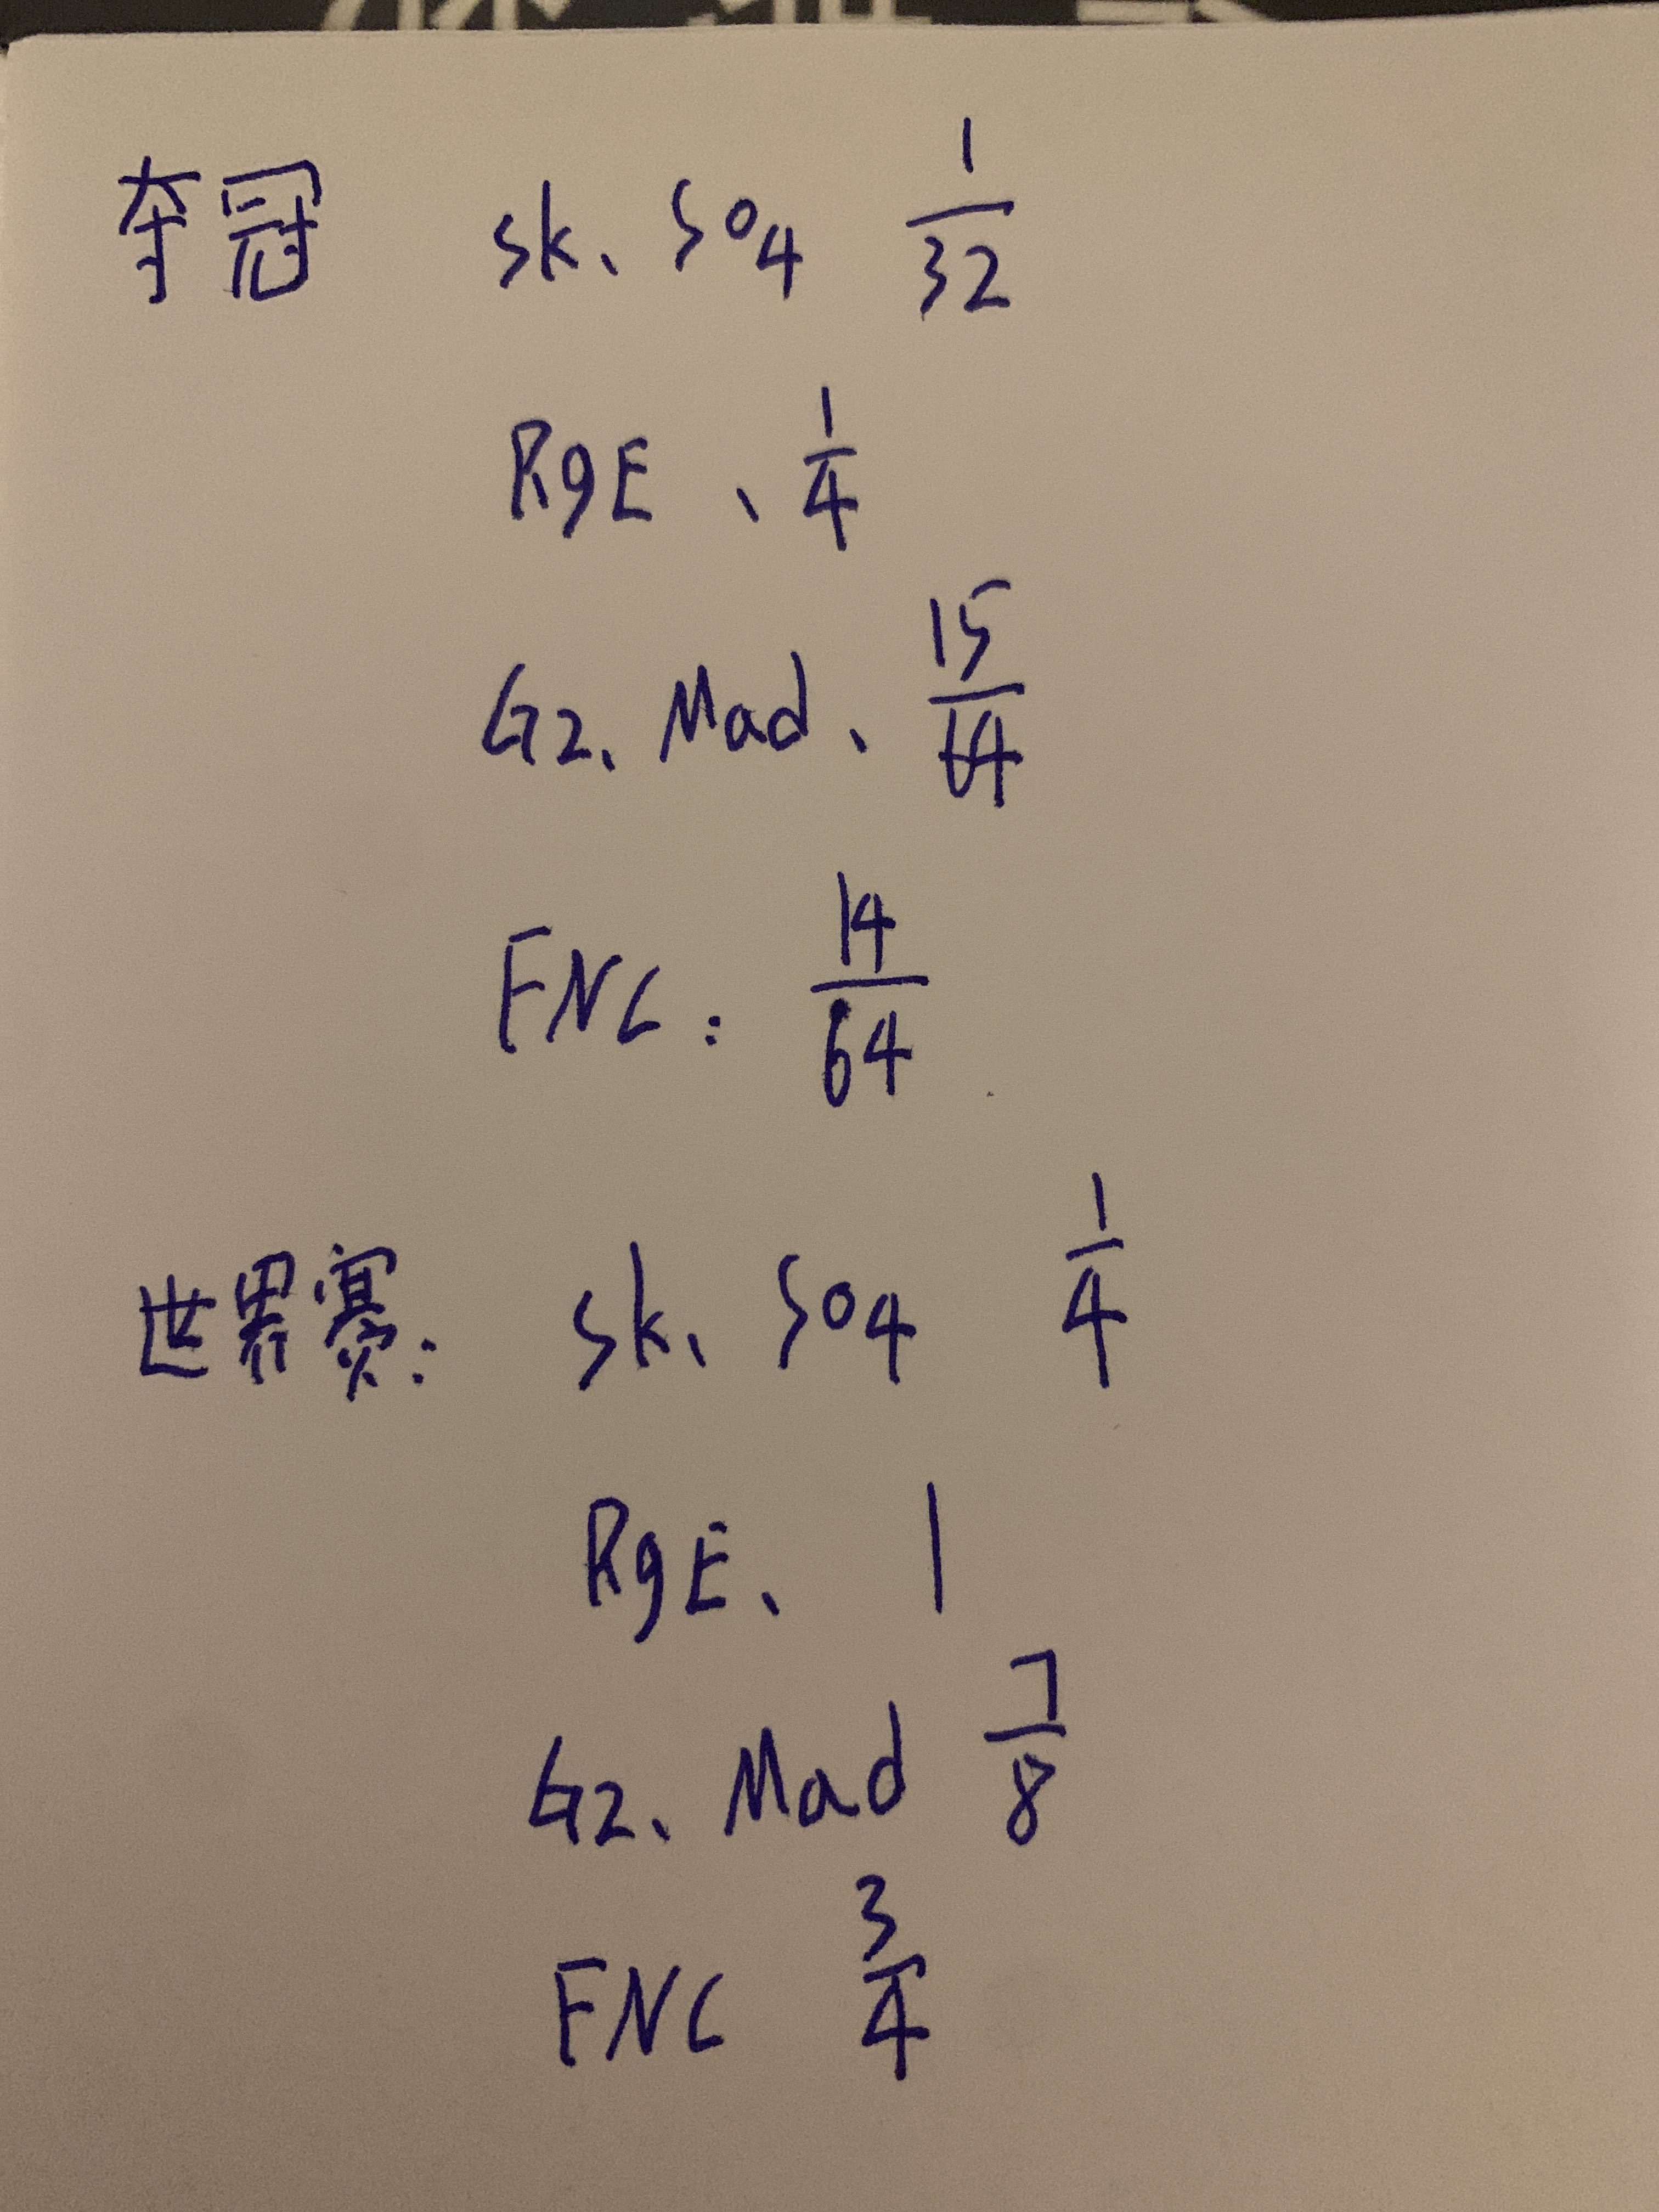 夺冠 sk、S04 1/32
RgE、1/4
G2、Mad、15/64
FNC: 14/64
世界赛: sk、S04 1/4
RgE、1
G2、Mad 7/8
FNC 3/4